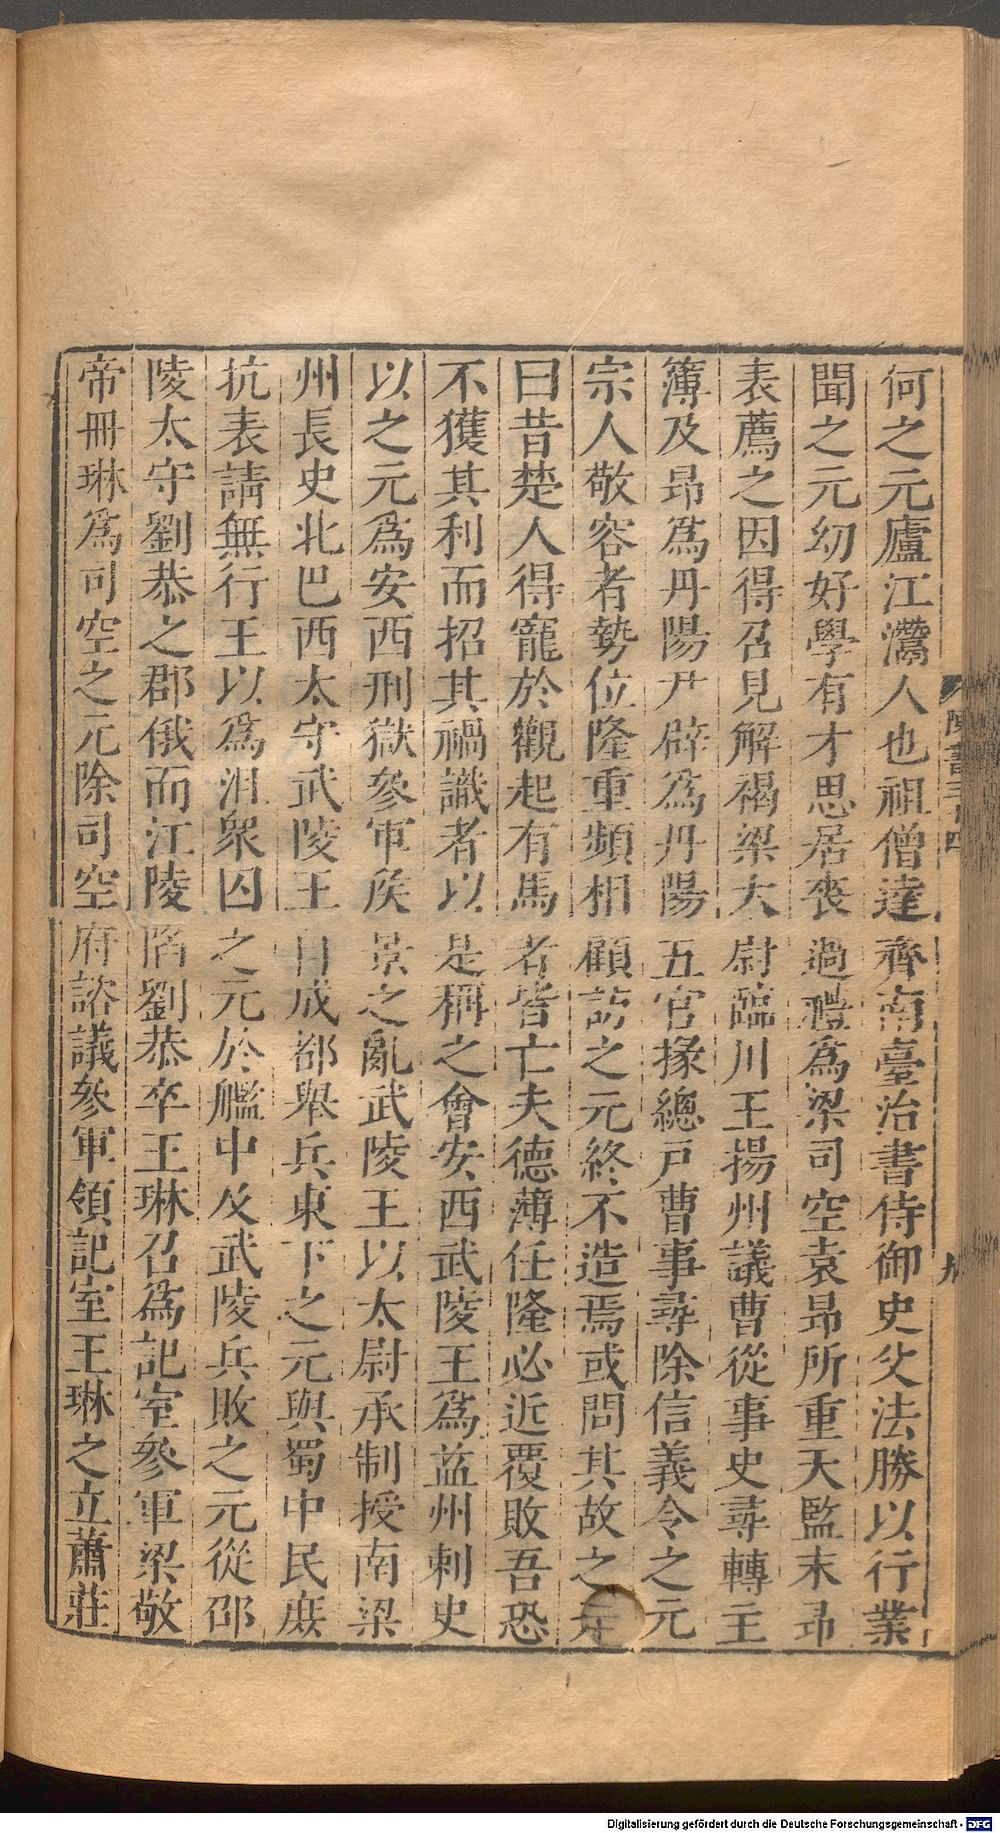 陳書三十四
九
何之元廬江灊人也祖僧達齊南臺治書侍御史父法勝以行業
聞之元幼好學有才思居喪過禮爲梁司空袁昂所重天監末昂
表薦之因得召見解褐梁太尉臨川王揚州議曹從事史尋轉主
簿及昂爲丹陽尹辟爲丹陽五官掾總戶曹事尋除信義令之元
宗人敬容者勢位隆重頻相顧訪之元終不造焉或問其故之元
曰昔楚人得寵於觀起有馬者皆亡夫德薄任隆必近覆敗吾恐
不獲其利而招其禍識者以是稱之會安西武陵王爲益州刺史
以之元爲安西刑獄參軍侯景之亂武陵王以太尉承制授南梁
州長史北巴西太守武陵王自成都舉兵東下之元與蜀中民庶
抗表請無行王以爲沮衆囚之元於艦中及武陵兵敗之元從邵
陵太守劉恭之郡俄而江陵陷劉恭卒王琳召爲記室參軍梁敬
帝冊琳爲司空之元除司空府諮議參軍領記室王琳之立蕭莊
Digitalisierung gefördert durch die Deutsche Forschungsgemeinschaft - DFG